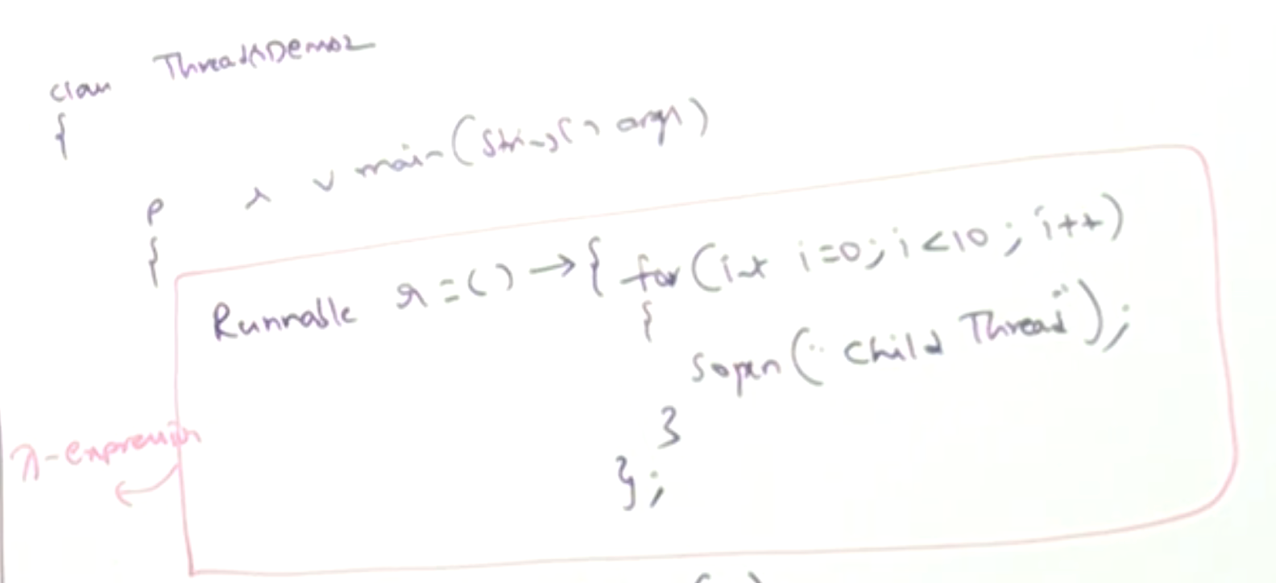 class ThreadDemo2
{
p s v main(String[] args)
{
Runnable r = () → { for(int i=0; i<10; i++)
{
Sopln("Child Thread");
}
};
λ-expression